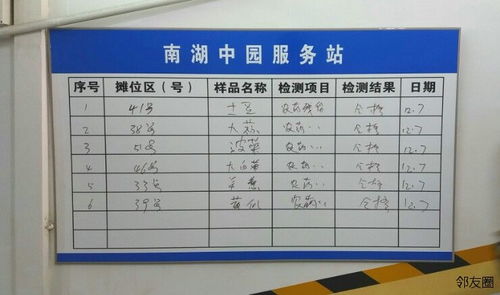 南湖中园服务站
序号 摊位区（号） 样品名称 检测项目 检测结果 日期
1 41号 土豆 农药残留 合格 12.7
2 38号 大蒜 农药〃 合格 12.7
3 51号 菠菜 农药〃 合格 12.7
4 46号 大白菜 农药〃 合格 12.7
5 33号 农药〃 合格 12.7
6 39号 黄瓜 农药〃 合格 12.7
邻友圈